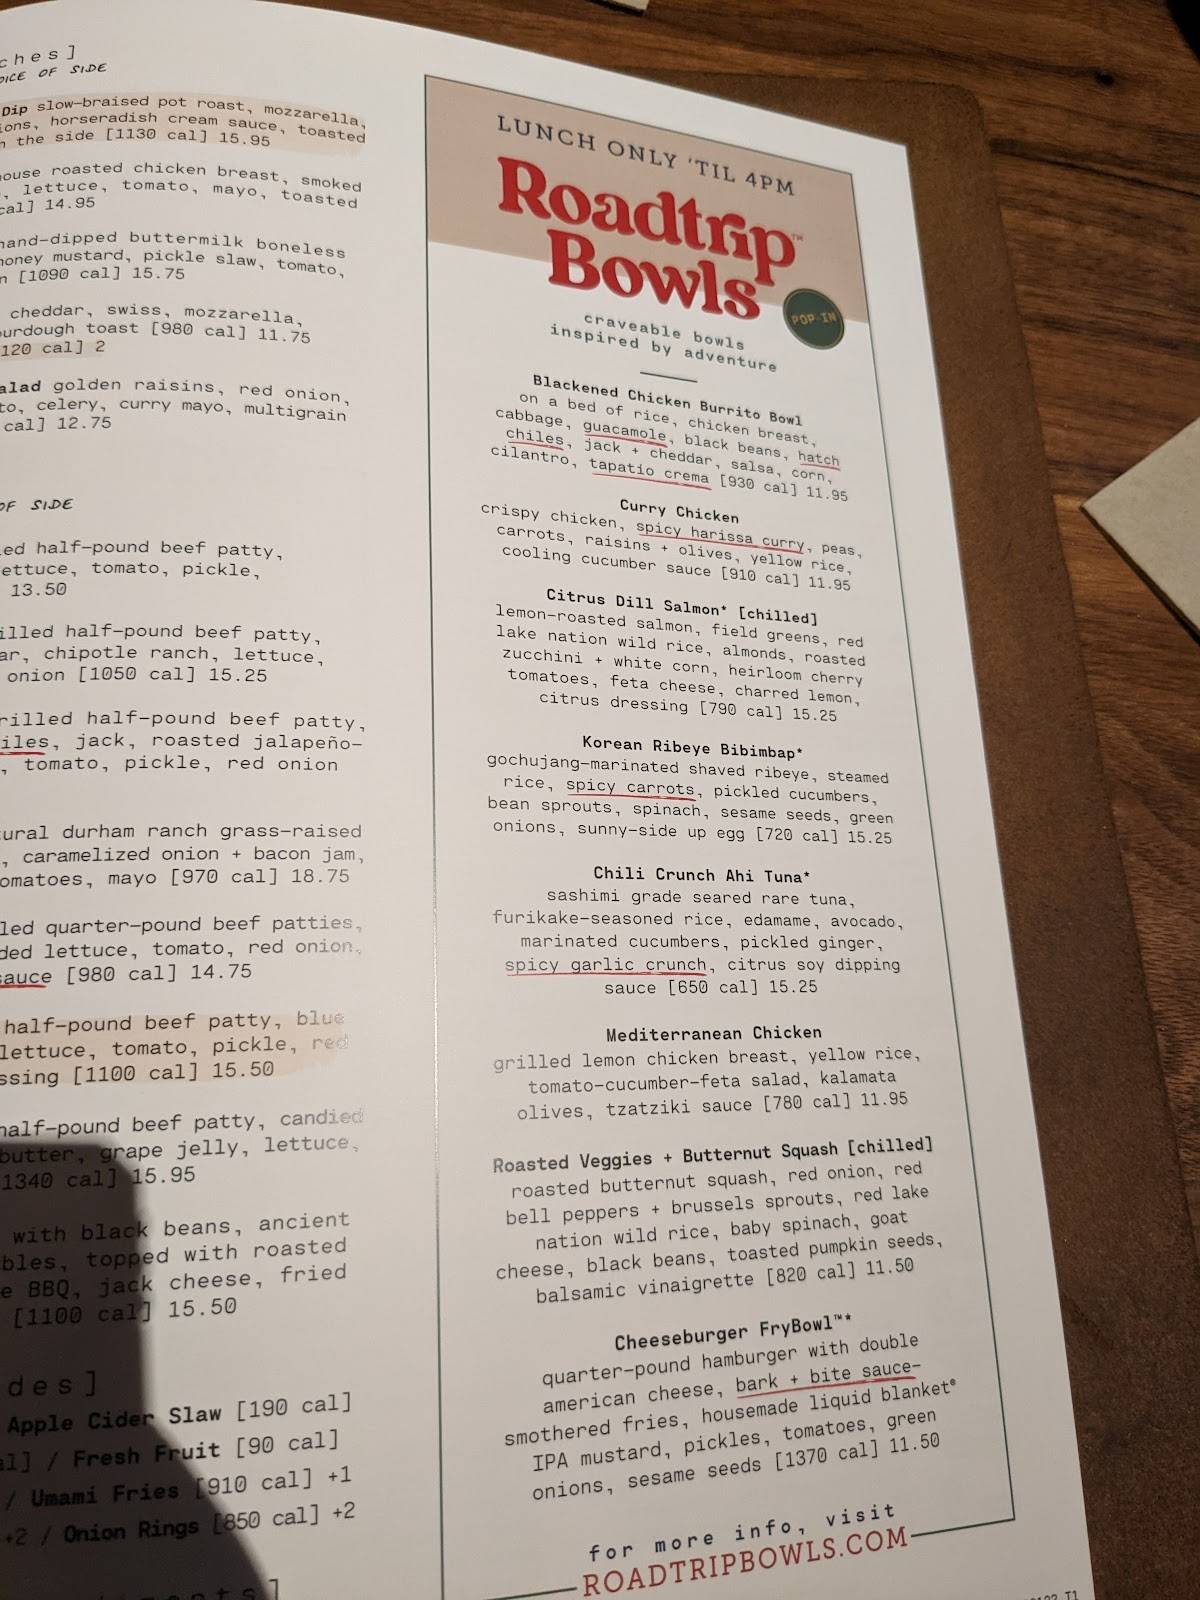 ches]
OICE OF SIDE
Dip slow-braised pot roast, mozzarella,
ions, horseradish cream sauce, toasted
n the side [1130 cal] 15.95
ouse roasted chicken breast, smoked
, lettuce, tomato, mayo, toasted
cal] 14.95
hand-dipped buttermilk boneless
honey mustard, pickle slaw, tomato,
n [1090 cal] 15.75
cheddar, swiss, mozzarella,
ourdough toast [980 cal] 11.75
120 cal] 2
alad golden raisins, red onion,
to, celery, curry mayo, multigrain
cal] 12.75
OF SIDE
led half-pound beef patty,
ettuce, tomato, pickle,
13.50
illed half-pound beef patty,
ar, chipotle ranch, lettuce,
onion [1050 cal] 15.25
rilled half-pound beef patty,
iles, jack, roasted jalapeño-
, tomato, pickle, red onion
tural durham ranch grass-raised
, caramelized onion + bacon jam,
omatoes, mayo [970 cal] 18.75
led quarter-pound beef patties,
ded lettuce, tomato, red onion,
sauce [980 cal] 14.75
half-pound beef patty, blue
lettuce, tomato, pickle, red
ssing [1100 cal] 15.50
half-pound beef patty, candied
butter, grape jelly, lettuce,
1340 cal] 15.95
with black beans, ancient
bles, topped with roasted
e BBQ, jack cheese, fried
[1100 cal] 15.50
des]
Apple Cider Slaw [190 cal]
al] / Fresh Fruit [90 cal]
/ Umami Fries [910 cal] +1
+2 / Onion Rings [850 cal] +2
LUNCH ONLY 'TIL 4PM
Roadtrip™
Bowls
POP-IN
craveable bowls
inspired by adventure
Blackened Chicken Burrito Bowl
on a bed of rice, chicken breast,
cabbage, guacamole, black beans, hatch
chiles, jack + cheddar, salsa, corn,
cilantro, tapatio crema [930 cal] 11.95
Curry Chicken
crispy chicken, spicy harissa curry, peas,
carrots, raisins + olives, yellow rice,
cooling cucumber sauce [910 cal] 11.95
Citrus Dill Salmon* [chilled]
lemon-roasted salmon, field greens, red
lake nation wild rice, almonds, roasted
zucchini + white corn, heirloom cherry
tomatoes, feta cheese, charred lemon,
citrus dressing [790 cal] 15.25
Korean Ribeye Bibimbap*
gochujang-marinated shaved ribeye, steamed
rice, spicy carrots, pickled cucumbers,
bean sprouts, spinach, sesame seeds, green
onions, sunny-side up egg [720 cal] 15.25
Chili Crunch Ahi Tuna*
sashimi grade seared rare tuna,
furikake-seasoned rice, edamame, avocado,
marinated cucumbers, pickled ginger,
spicy garlic crunch, citrus soy dipping
sauce [650 cal] 15.25
Mediterranean Chicken
grilled lemon chicken breast, yellow rice,
tomato-cucumber-feta salad, kalamata
olives, tzatziki sauce [780 cal] 11.95
Roasted Veggies + Butternut Squash [chilled]
roasted butternut squash, red onion, red
bell peppers + brussels sprouts, red lake
nation wild rice, baby spinach, goat
cheese, black beans, toasted pumpkin seeds,
balsamic vinaigrette [820 cal] 11.50
Cheeseburger FryBowl™*
quarter-pound hamburger with double
american cheese, bark + bite sauce-
smothered fries, housemade liquid blanket®
IPA mustard, pickles, tomatoes, green
onions, sesame seeds [1370 cal] 11.50
for more info, visit
ROADTRIPBOWLS.COM